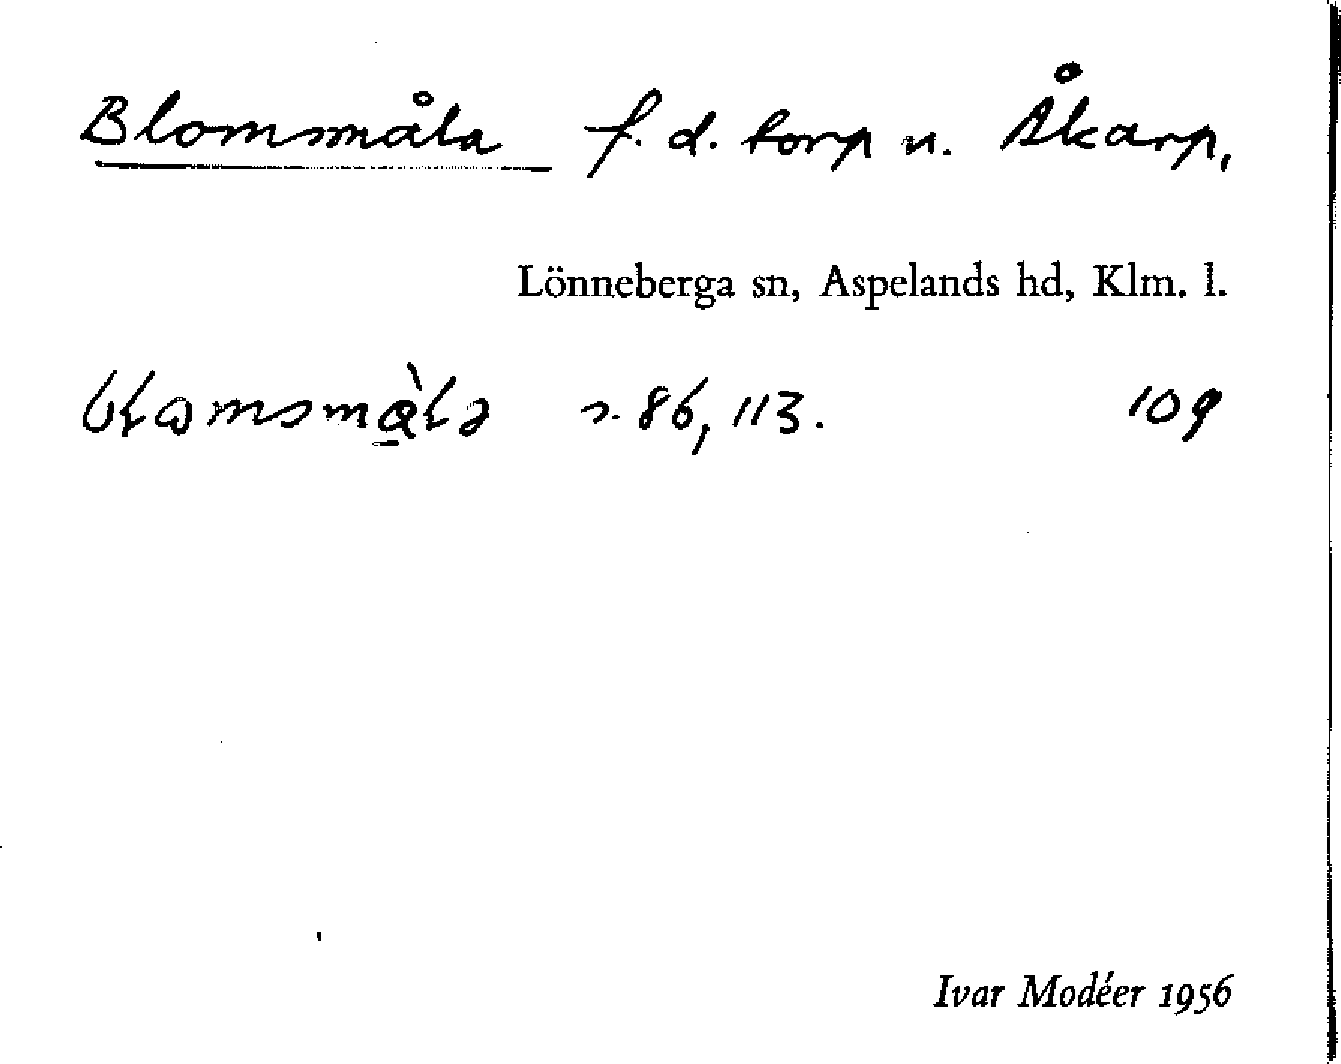 Blommåla f. d. torp u. Åkarp,
Lönneberga sn, Aspelands hd, Klm. l.
s. 86, 113. 109
Ivar Modéer 1956